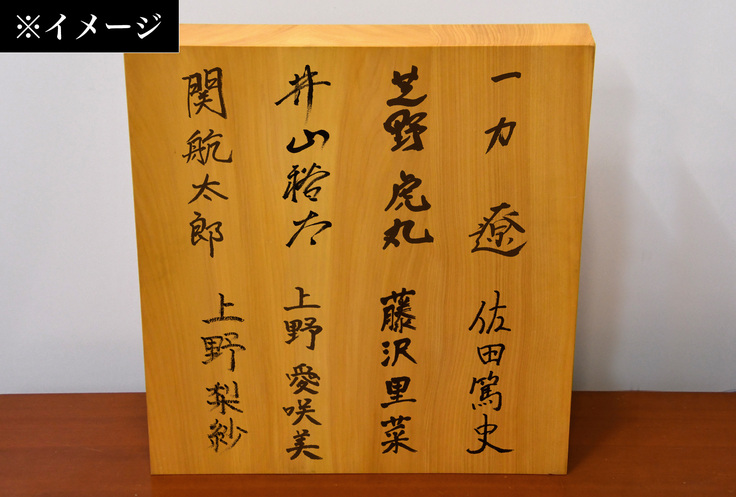 ※イメージ
一力 遼
芝野 虎丸
井山裕太
関 航太郎
佐田篤史
藤沢里菜
上野 愛咲美
上野 梨紗